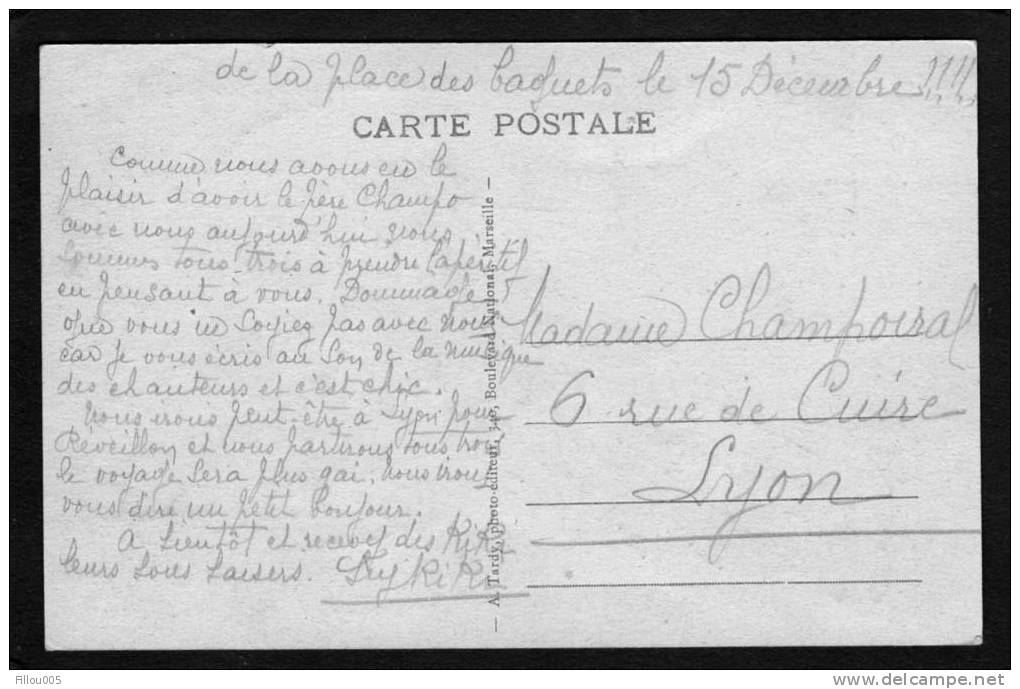 de la place des baquets le 15 Décembre !!!!
CARTE POSTALE
Comme nous avons eu le
plaisir d'avoir le père Champo
avec nous aujourd'hui nous
sommes tous trois à prendre l'apéritif
en pensant à vous. Dommage
que vous ne soyiez pas avec nous
car je vous écris au son de la musique
des chanteurs et c'est chic.
Nous irons peut-être à Lyon pour
Reveillon et nous partirons tous trois
le voyage sera plus gai, nous
vous dire un petit bonjour.
A bientôt et recevez des KiKi
leurs bons baisers. KiKi
A. Tardy, photo-éditeur, 340, Boulevard National, Marseille
Madame Champoiral
6 rue de Cuire
Lyon
Filou005
www.delcampe.net